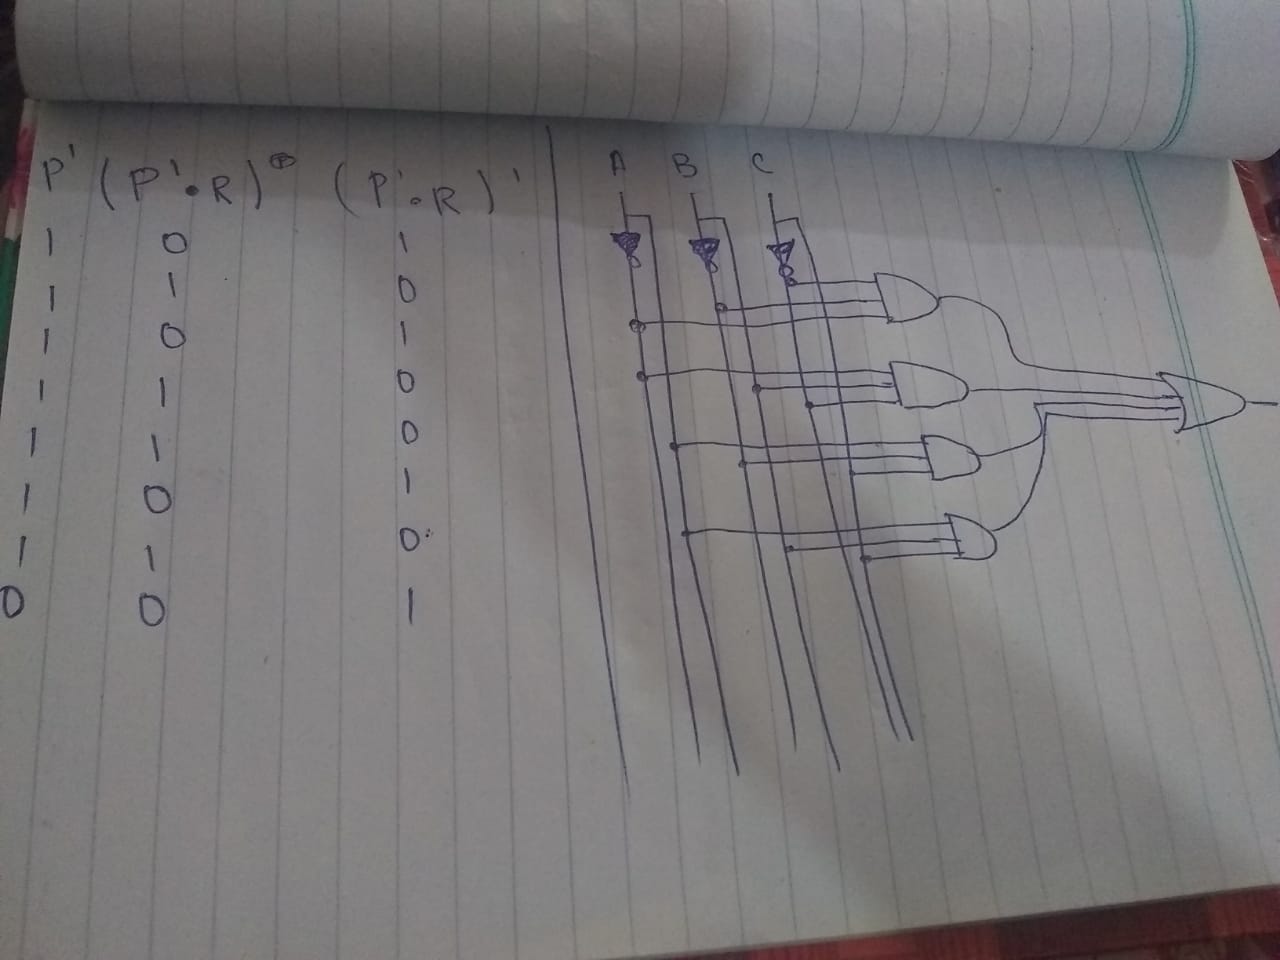 P' (P'.R)⊕ (P'.R)' A B C
1 0 1
1 1 0
1 0 1
1 1 0
1 1 0
1 0 1
1 1 0
0 0 1